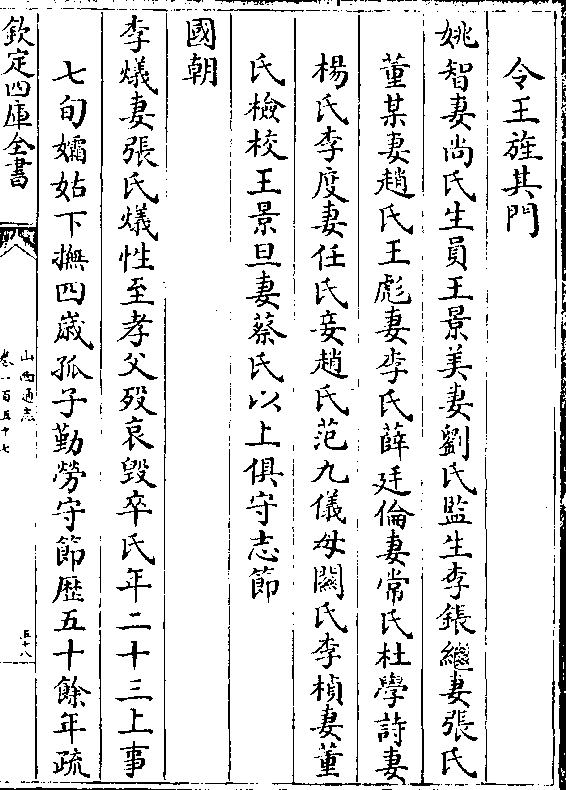 令王旌其門
姚智妻尚氏生員王景美妻劉氏監生李鋹繼妻張氏
董某妻趙氏王彪妻李氏薛廷倫妻常氏杜學詩妻
楊氏李度妻任氏妾趙氏范九儀母闗氏李楨妻董
氏檢校王景旦妻蔡氏以上俱守志節
國朝
李爔妻張氏爔性至孝父歿哀毀卒氏年二十三上事
七旬孀姑下撫四歲孤子勤勞守節歴五十餘年疏
欽定四庫全書
山西通志
卷一百五十七
五十八